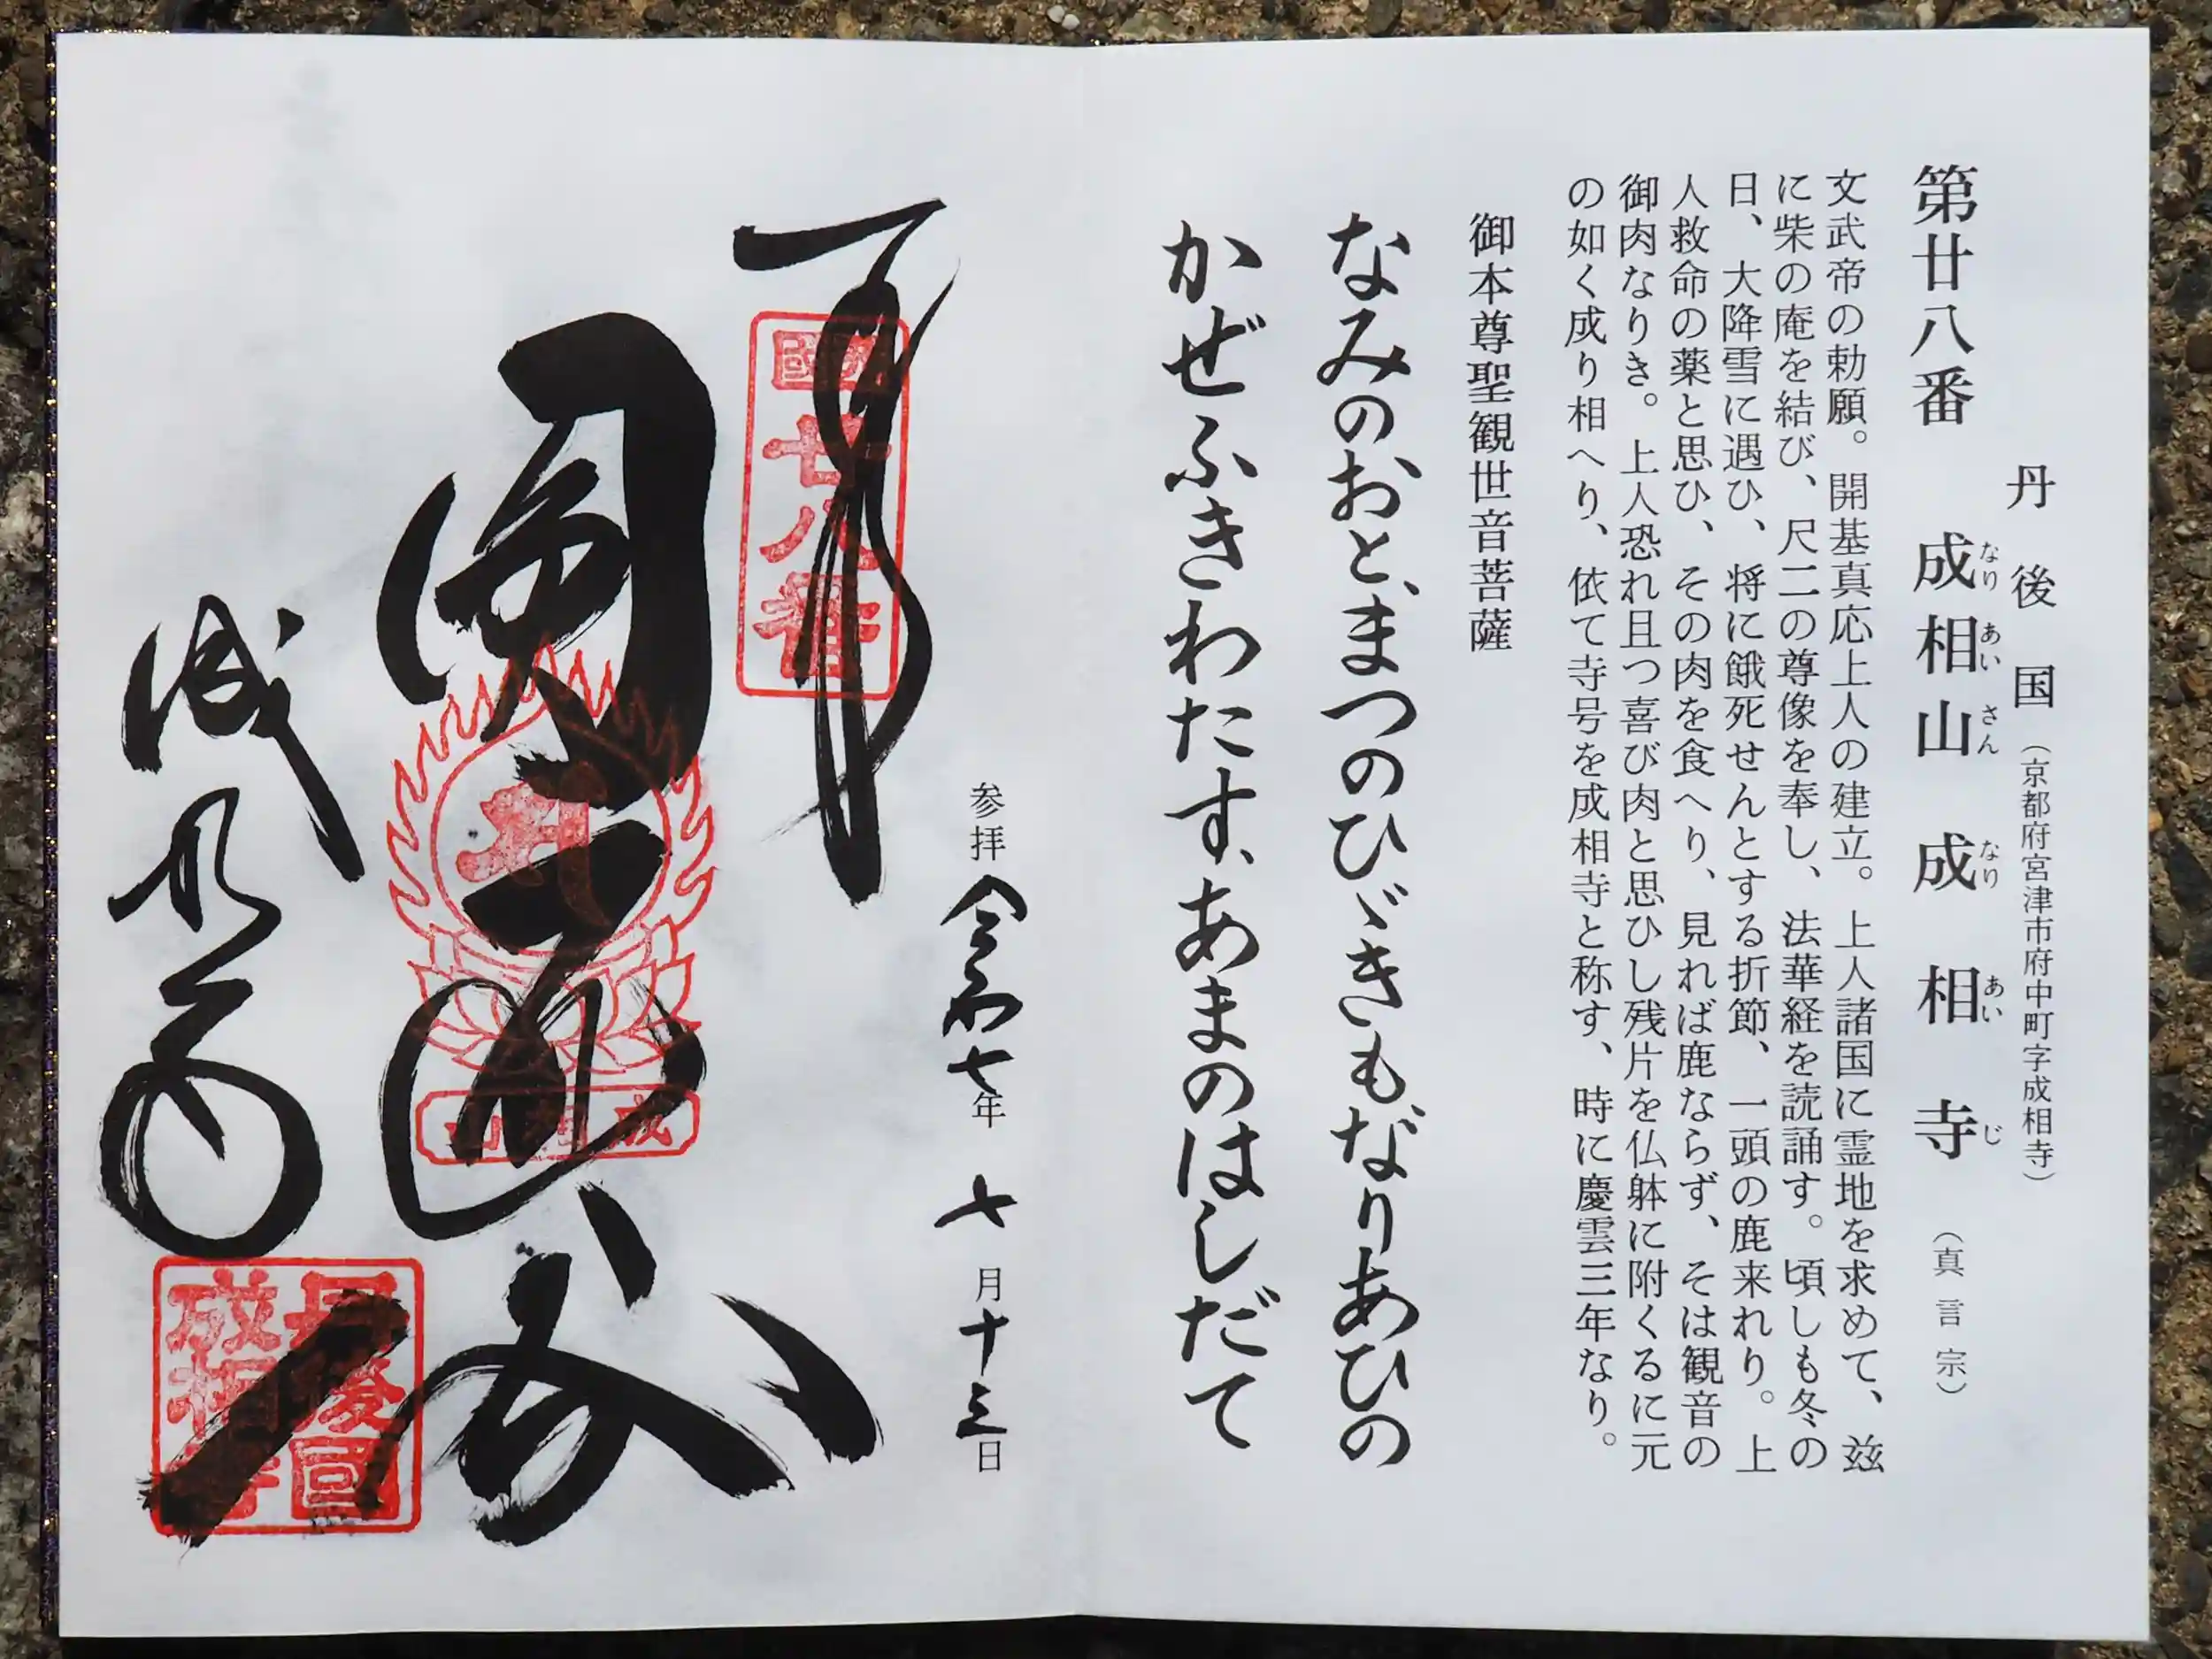 丹後国（京都府宮津市府中町字成相寺）
第廿八番 成相山 成相寺（真言宗）
なり あい さん なり あい じ
文武帝の勅願。開基真応上人の建立。上人諸国に霊地を求めて、茲
に柴の庵を結び、尺二の尊像を奉し、法華経を読誦す。頃しも冬の
日、大降雪に遇ひ、将に餓死せんとする折節、一頭の鹿来れり。上
人救命の薬と思ひ、その肉を食へり、見れば鹿ならず、そは観音の
御肉なりき。上人恐れ且つ喜び肉と思ひし残片を仏躰に附くるに元
の如く成り相へり、依て寺号を成相寺と称す、時に慶雲三年なり。
御本尊聖観世音菩薩
なみのおと、まつのひゞきも、なりあひの
かぜふきわたす、あまのはしだて
参拝 令和七年 七月十三日
奉
國廿八番
成相山
成相寺
丹後國
成相寺